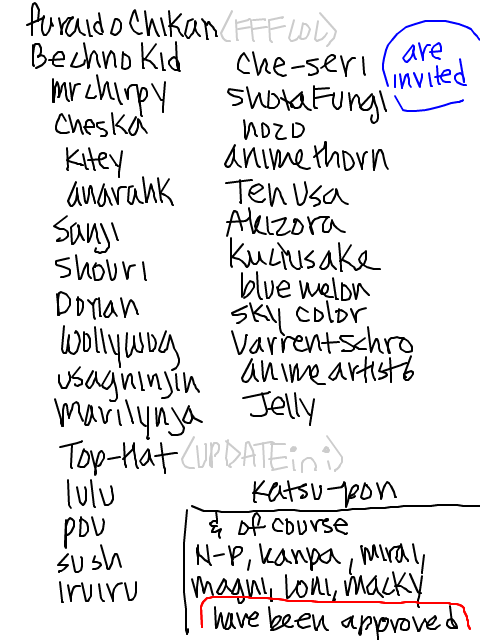 Puraido Chikan (FFFLOL)
Bechno Kid
mrchirpy
Cheska
Kitey
anarahk
Sanji
Shouri
Dorian
Wollywog
usagninjin
Marilynja
Top-Hat (UPDATEini)
lulu
pou
sush
Iruiru
che-seri
ShotaFungi
nozo
animethorn
Ten Usa
Akizora
Kuciusake
blue melon
sky color
Varrentschro
animeartist6
Jelly
Katsu-pon
are
invited
& of course
N-P, kanpa, miral,
magni, Loni, macky
have been approved